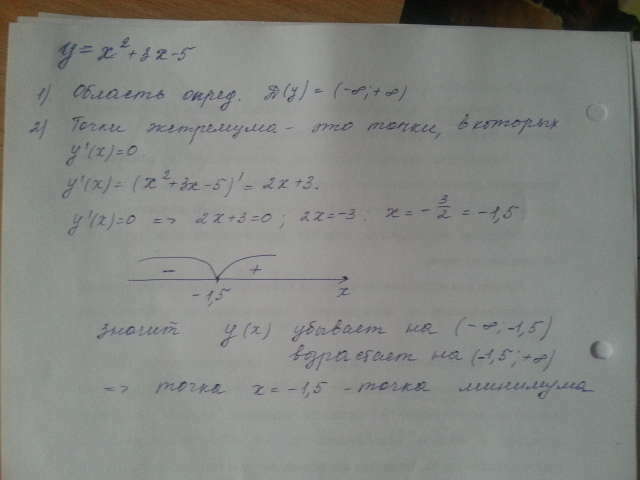 y = x² + 3x - 5
1) Область опред. D(y) = (-∞; +∞)
2) Точки экстремума - это точки, в которых
y'(x)=0
y'(x) = (x² + 3x - 5)' = 2x + 3.
y'(x)=0 => 2x+3=0; 2x=-3. x = -3/2 = -1,5
- +
-1,5 x
значит y(x) убывает на (-∞; -1,5)
возрастает на (-1,5; +∞)
=> точка x = -1,5 - точка минимума